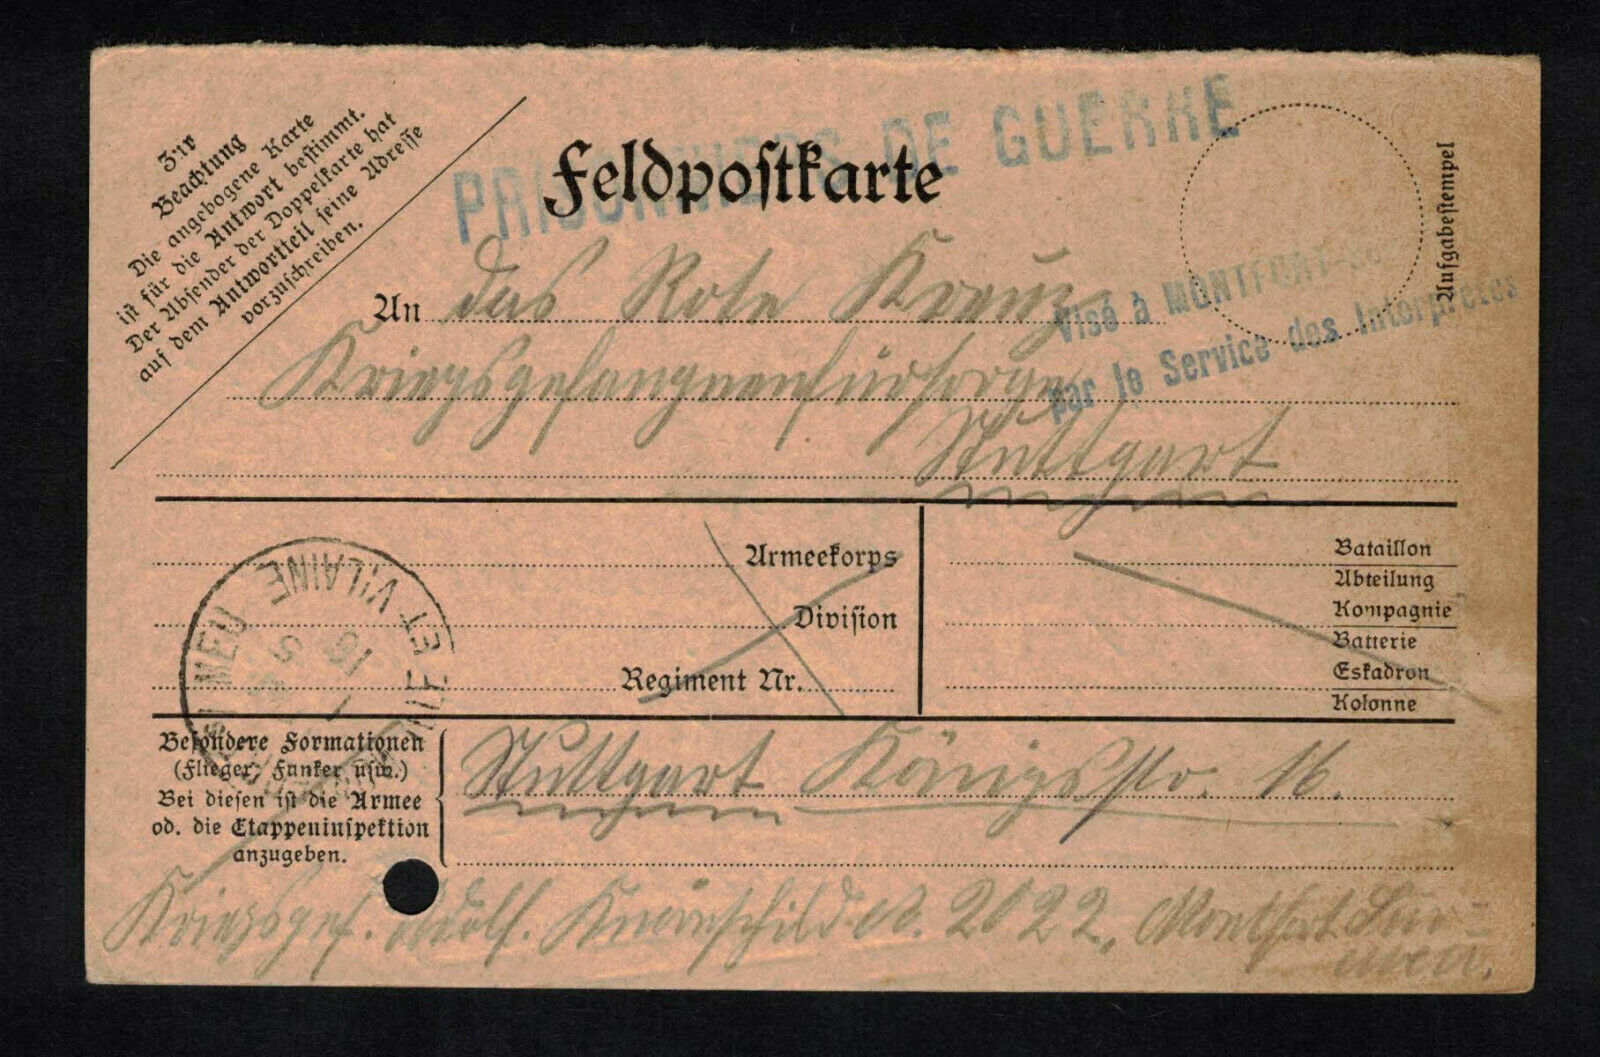 Zur
Beachtung
Die angebogene Karte
ist für die Antwort bestimmt.
Der Absender der Doppelkarte hat
auf dem Antwortteil seine Adresse
vorzuschreiben.
PRISONNIERS DE GUERRE
Feldpostkarte
Aufgabestempel
An das Rote Kreuz
Visé à MONTFORT
par le Service des Interprètes
Kriegsgefangnenfürsorge
Stuttgart
Armeekorps
Division
Regiment Nr.
Bataillon
Abteilung
Kompagnie
Batterie
Eskadron
Kolonne
ET VILAINE
16 5
Besondere Formationen
(Flieger, Funker usw.)
Bei diesen ist die Armee
od. die Etappeninspektion
anzugeben.
Stuttgart Königsstr. 16.
Kriegsgef. Adolf 2022, Montfort Sur